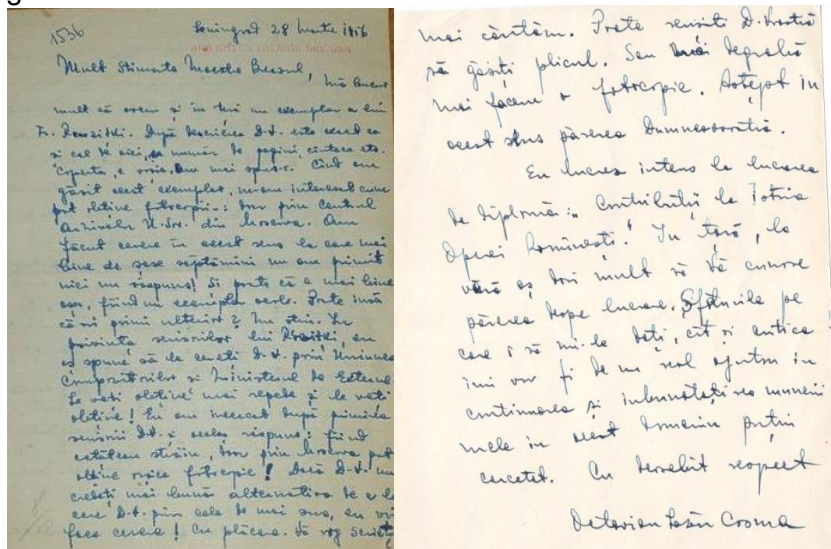 1536
Leningrad 28 Martie 1956
BIBLIOTECA GEORGE BREAZUL
Mult Stimate Maestre Breazul,
Mă bucur
mult că avem și în țară un exemplar a lui
Fr. Rouzitski. După descrierea D-t. este exact ca
și cel de aici, ca număr de pagini, cîntece etc.
Coperta e Cînd am
găsit acest exemplar, m-am interesat cum
pot obține fotocopii: doar prin Centrul
Arhivelor U. Sov. din Moscova. Am
făcut cerere în acest sens la care mai
bine de șase săptămîni nu am primit
nici un răspuns! Și poate că e mai bine
așa, fiind un exemplar Poate însă
că voi primi ulterior? Nu știu. În
privința lui eu
aș spune să le cereți D-t. prin Uniunea
Compozitorilor și Ministerul de Externe.
Le veți obține mai repede și le veți
obține! Eu am încercat după primirea
D-t. și același răspuns: fiind
cetățean străin, doar prin Moscova pot
obține orice fotocopie! Dacă D-t. nu
credeți mai bună alternativa de a le
cere D-t. prin cele de mai sus, eu voi
face cerere! Cu plăcere. Vă rog scrieți
mai căutăm. Poate reușiți D-voastră
să găsiți plicul. Sau mai degrabă
mai facem o fotocopie. Aștept în
acest sens părerea Dumneavoastră.
Eu lucrez intens la lucrarea
de diplomă: "Contribuții la Istoria
Operei Romînești". În țară, la
vară aș dori mult să vă cunosc
părerea despre lucrare. Sfaturile pe
care o să mi le dați, cît și critica
îmi vor fi de un real ajutor în
continuarea și îmbunătățirea muncii
mele în acest domeniu puțin
cercetat. Cu deosebit respect
Octavian Lazăr Cosma